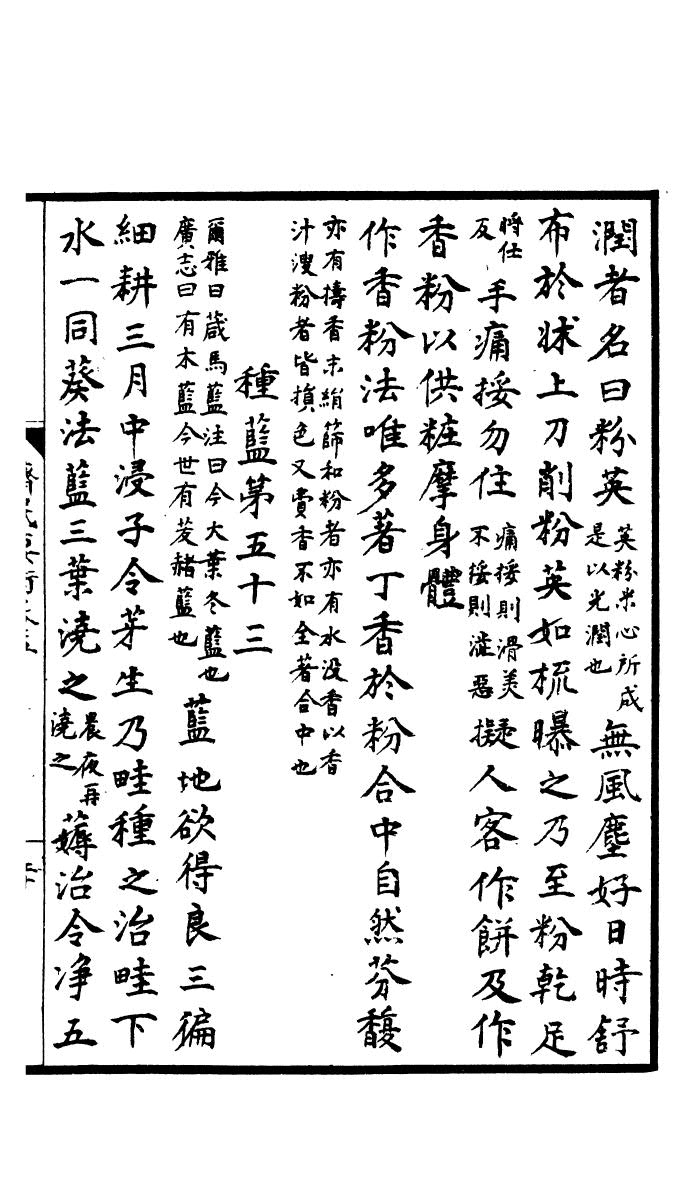 潤者名曰粉英英粉米心所成是以光潤也無風塵好日時舒
布於牀上刀削粉英如梳曝之乃至粉乾足
將仕反手痛挼勿住痛挼則滑美不挼則澁惡擬人客作餅及作
香粉以供粧摩身體
作香粉法唯多著丁香於粉合中自然芬馥
亦有擣香末絹篩和粉者亦有水没香以香汁溲粉者皆損色又費香不如全著合中也
種藍第五十三
爾雅曰葴馬藍注曰今大葉冬藍也廣志曰有木藍今世有茇赭藍也藍地欲得良三徧
細耕三月中浸子令芽生乃畦種之治畦下
水一同葵法藍三葉澆之晨夜再澆之薅治令净五